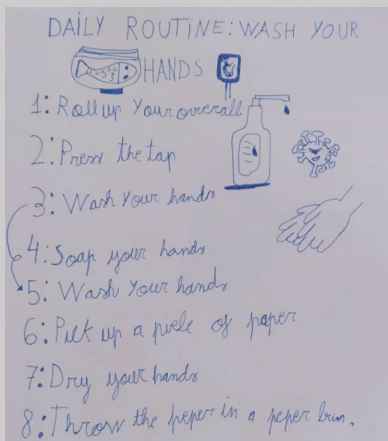 DAILY ROUTINE: WASH YOUR
HANDS
1: Roll up your overall
2: Press the tap
3: Wash your hands
4: Soap your hands
5: Wash your hands
6: Pick up a piele of paper
7: Dry your hands
8: Throw the peper in a peper brin.